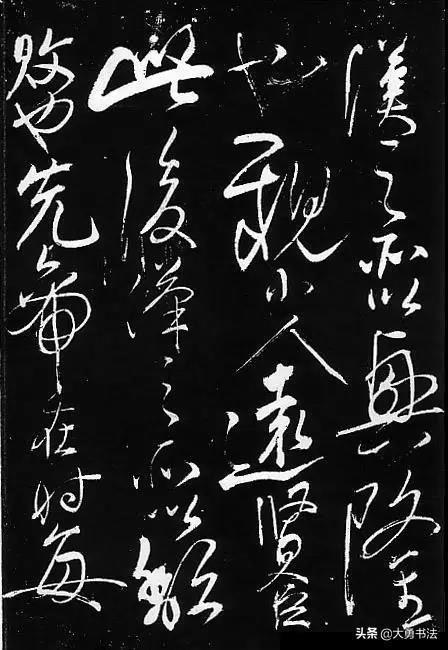 漢之所以興隆
也親小人遠賢臣
此後漢之所以頽
敗也先帝在时每
头条 @大勇书法